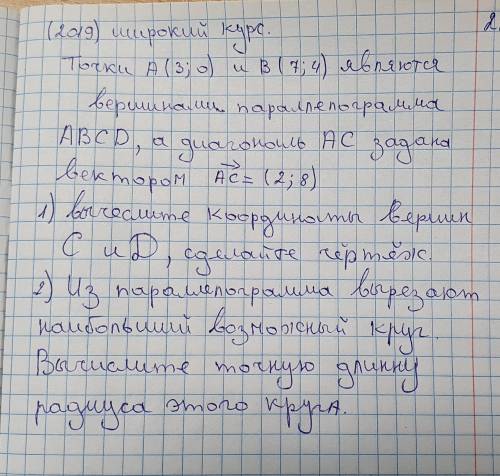 (2019) широкий курс.
2.
Точки A(3;0) и B(7;4) являются
вершинами параллелограмма
ABCD, а диагональ AC задана
вектором AC = (2;8)
1) вычеслите координаты вершин
C и D, сделайте чертёж.
2) Из параллелограмма вырезают
наибольший возможный круг.
Вычислите точную длинну
радиуса этого круга.